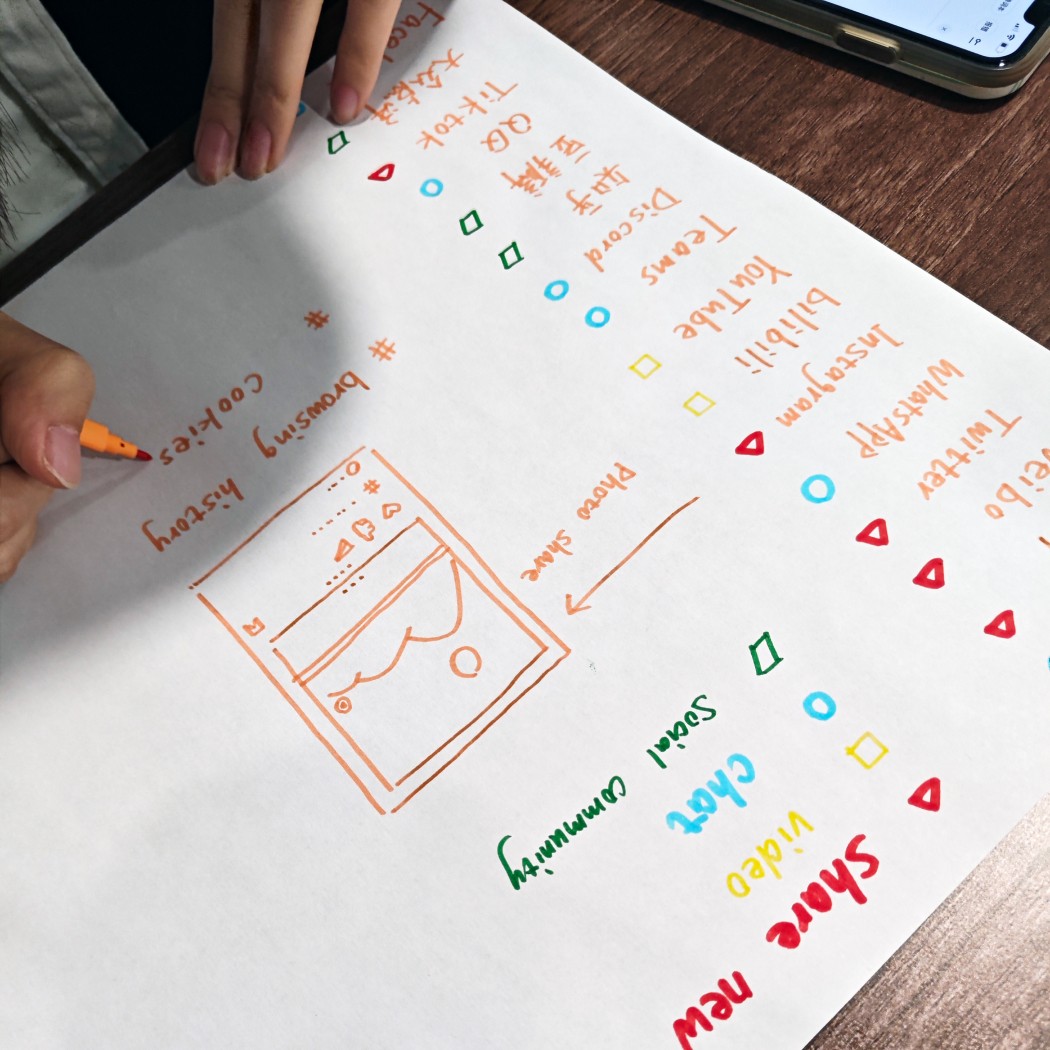 share new
video
chat
social community
eibo
Twitter
WhatsAPP
Instagram
bilibili
YouTube
Teams
Discord
知乎
豆瓣
QQ
Tiktok
大众点评
Face
Photo share
# browsing history
# cookies